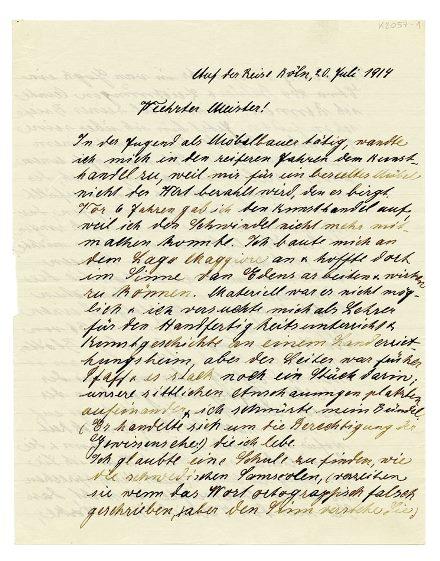 K2057-1
Auf der Reise Köln, 20. Juli 1914
Verehrter Meister!
In der Jugend als Möbelbauer tätig, wandte
ich mich in den reiferen Jahren dem Kunst-
handel zu, weil mir für ein Möbel
nicht der Wert bezahlt wird, den es birgt.
Vor 6 Jahren gab ich den Kunsthandel auf,
weil ich den Schwindel nicht mehr mit-
mathen konnte. Ich baute mich an
dem Lago Maggiore an & hoffte dort
im Sinne van Edens arbeiten & wirken
zu können. Materiell war es nicht mög-
lich & ich versuchte mich als Lehrer
für den Handfertigkeitsunterricht &
Kunstgeschichte an einem Landerzieh-
ungsheim, aber der Leiter war früher
Pfaff & es stack noch ein Stück darin;
unsere sittlichen Anschauungen platzten
aufeinander & ich schnürte mein Bündel.
(Er handelte sich um die Berechtigung der
Gewissensehe!) die ich lebe
Ich glaubte eine Schule zu finden, wie
die schwedischen Samscolen, (verzeihen
sie wenn das Wort ortograppisch falsch
geschrieben, aber den Sinn verstehe Sie)